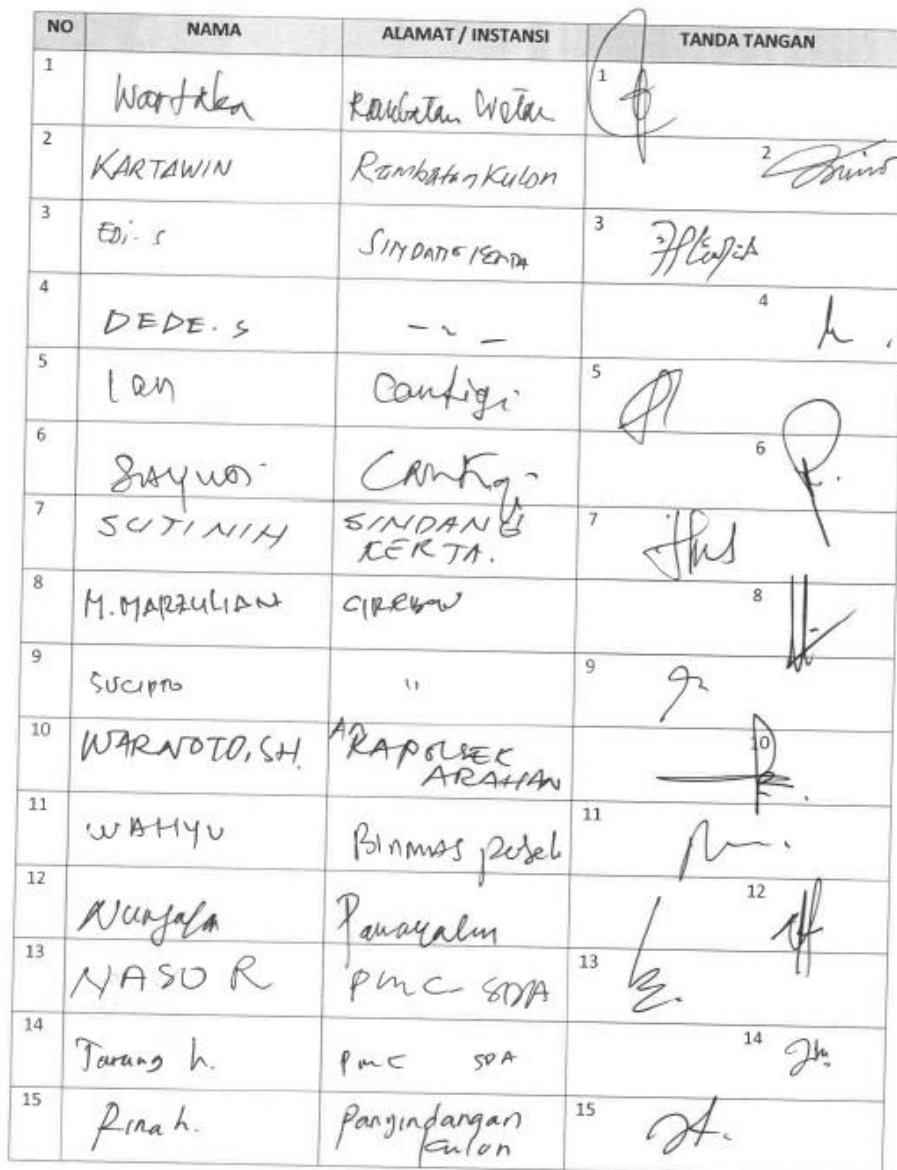 NO NAMA ALAMAT / INSTANSI TANDA TANGAN
1 Wartaka Rambatan Wetan 1
2 KARTAWIN Rambatan Kulon 2
3 EDI. S SINDANG KERTA 3
4 DEDE. S - ~ - 4
5 Ian Cantigi 5
6 Cantigi 6
7 SUTINIH SINDANG KERTA. 7
8 M. MARZULIAN CIREBON 8
9 SUCIPTO " 9
10 WARNOTO, SH. AN KAPOLSEK ARAHAN 10
11 WAHYU Binmas polsek 11
12 Nurjaya 12
13 NASO R PMC SDA 13
14 Tarang h. PMC SDA 14
15 Rina h. Panyindangan Kulon 15